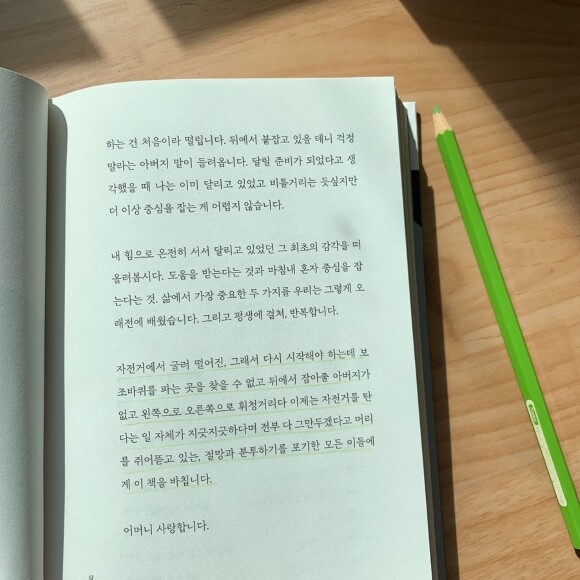 하는 건 처음이라 떨립니다. 뒤에서 붙잡고 있을 테니 걱정
말라는 아버지 말이 들려옵니다. 달릴 준비가 되었다고 생
각했을 때 나는 이미 달리고 있었고 비틀거리는 듯싶지만
더 이상 중심을 잡는 게 어렵지 않습니다.
내 힘으로 온전히 서서 달리고 있었던 그 최초의 감각을 떠
올려봅시다. 도움을 받는다는 것과 마침내 혼자 중심을 잡
는다는 것. 삶에서 가장 중요한 두 가지를 우리는 그렇게 오
래전에 배웠습니다. 그리고 평생에 걸쳐, 반복합니다.
자전거에서 굴러 떨어진, 그래서 다시 시작해야 하는데 보
조바퀴를 파는 곳을 찾을 수 없고 뒤에서 잡아줄 아버지가
없고 왼쪽으로 오른쪽으로 휘청거리다 이제는 자전거를 탄
다는 일 자체가 지긋지긋하다며 전부 다 그만두겠다고 머리
를 쥐어뜯고 있는, 절망과 분투하기를 포기한 모든 이들에
게 이 책을 바칩니다.
어머니 사랑합니다.